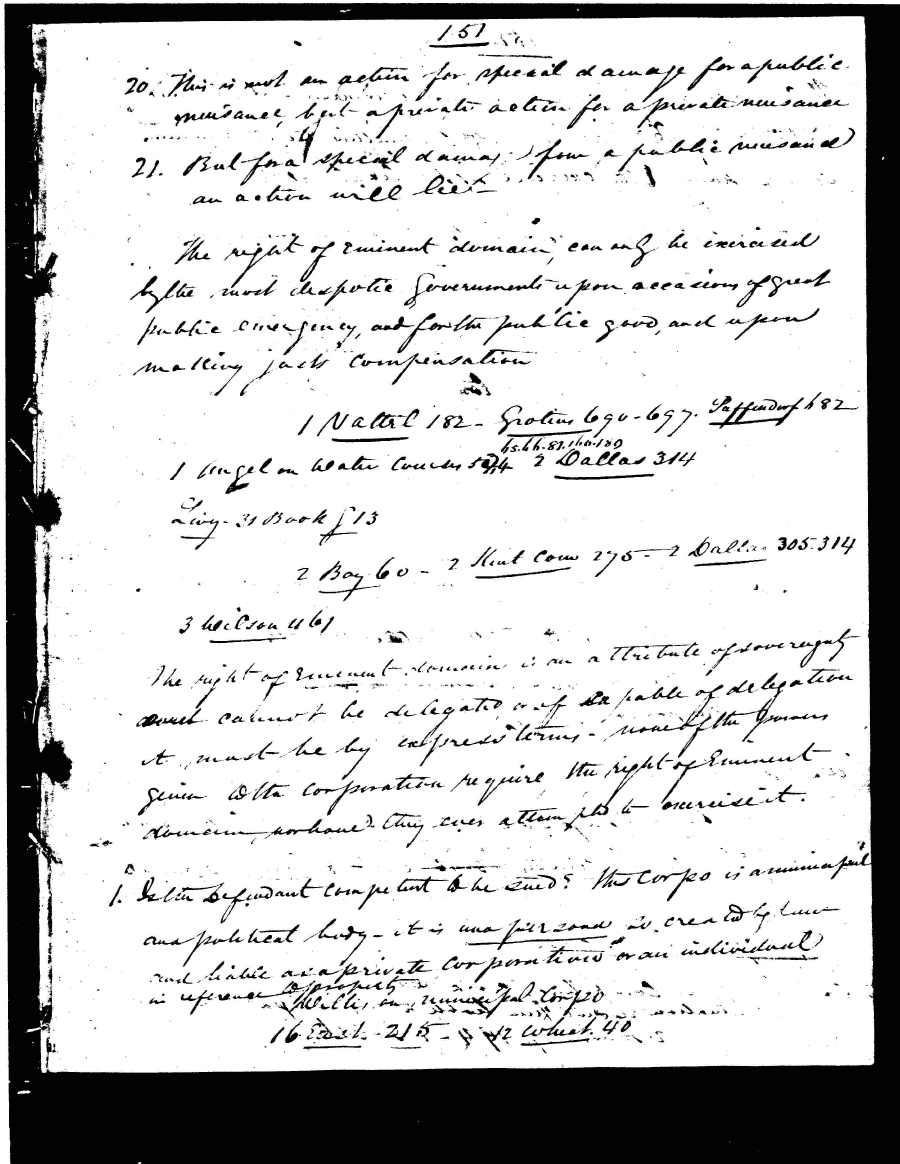 151
20. This is not an action for special damage for a public
nuisance, but a private action for a private nuisance
21. But for a special damage from a public nuisance
an action will lie -
The right of Eminent domain, can only be exercised
by the most despotic Governments upon occasions of great
public emergency, and for the public good, and upon
making just compensation
1 Vattel 182 - Grotius 690-697. Puffendorf h 82
1 Angel on Water Courses 2 Dallas 314
Livy - 31 Book § 13
2 Bay 60 - 2 Kent Com 275 - 2 Dallas 305.314
3 Wilson 461
The right of Eminent domain is an attribute of sovereignty
cannot be delegated or if capable of delegation
it must be by express terms - none of the powers
given to the corporation require the right of Eminent
domain, nor have they ever attempted to exercise it.
1. Is the Defendant competent to be sued? The Corpo is a municipal
and political body - it is una persona so created by law
and liable as a private corporation or an individual
in reference to property
Willis on municipal Corpo
16 East 215 - 12 Wheat. 40